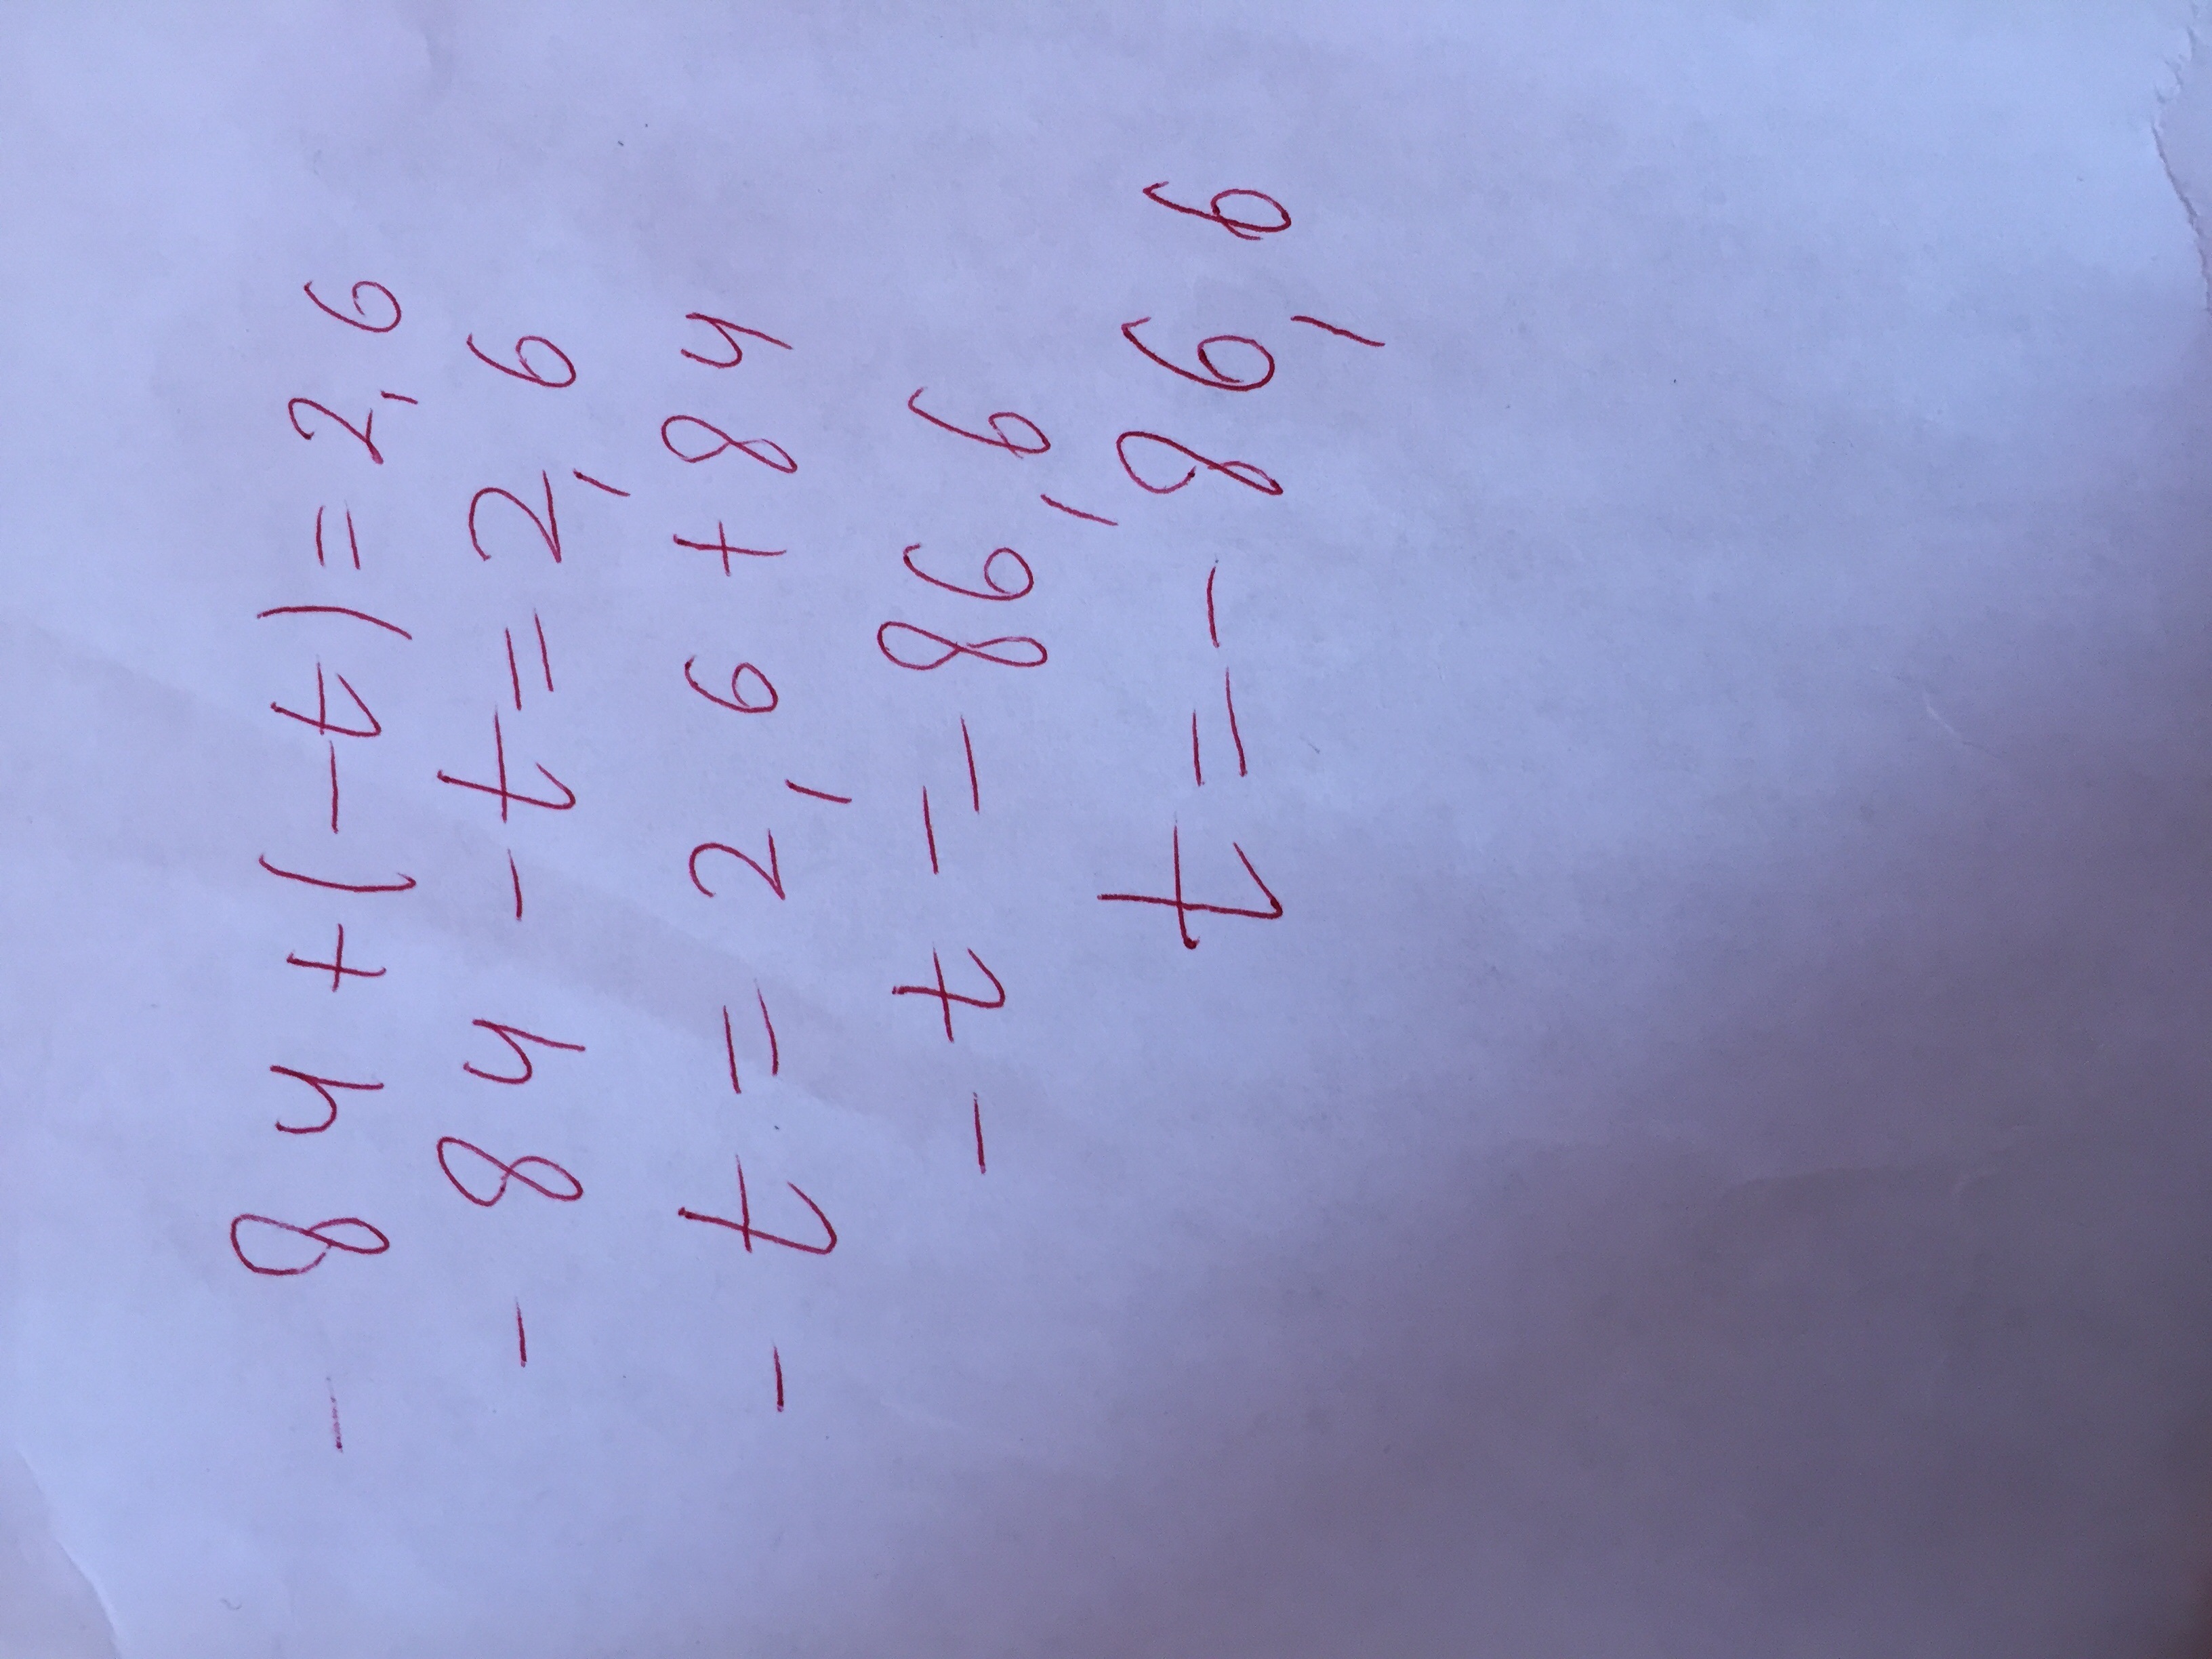 -84+(-t)=2,6
-84-t=2,6
-t=2,6+84
-t=86,6
t=-86,6